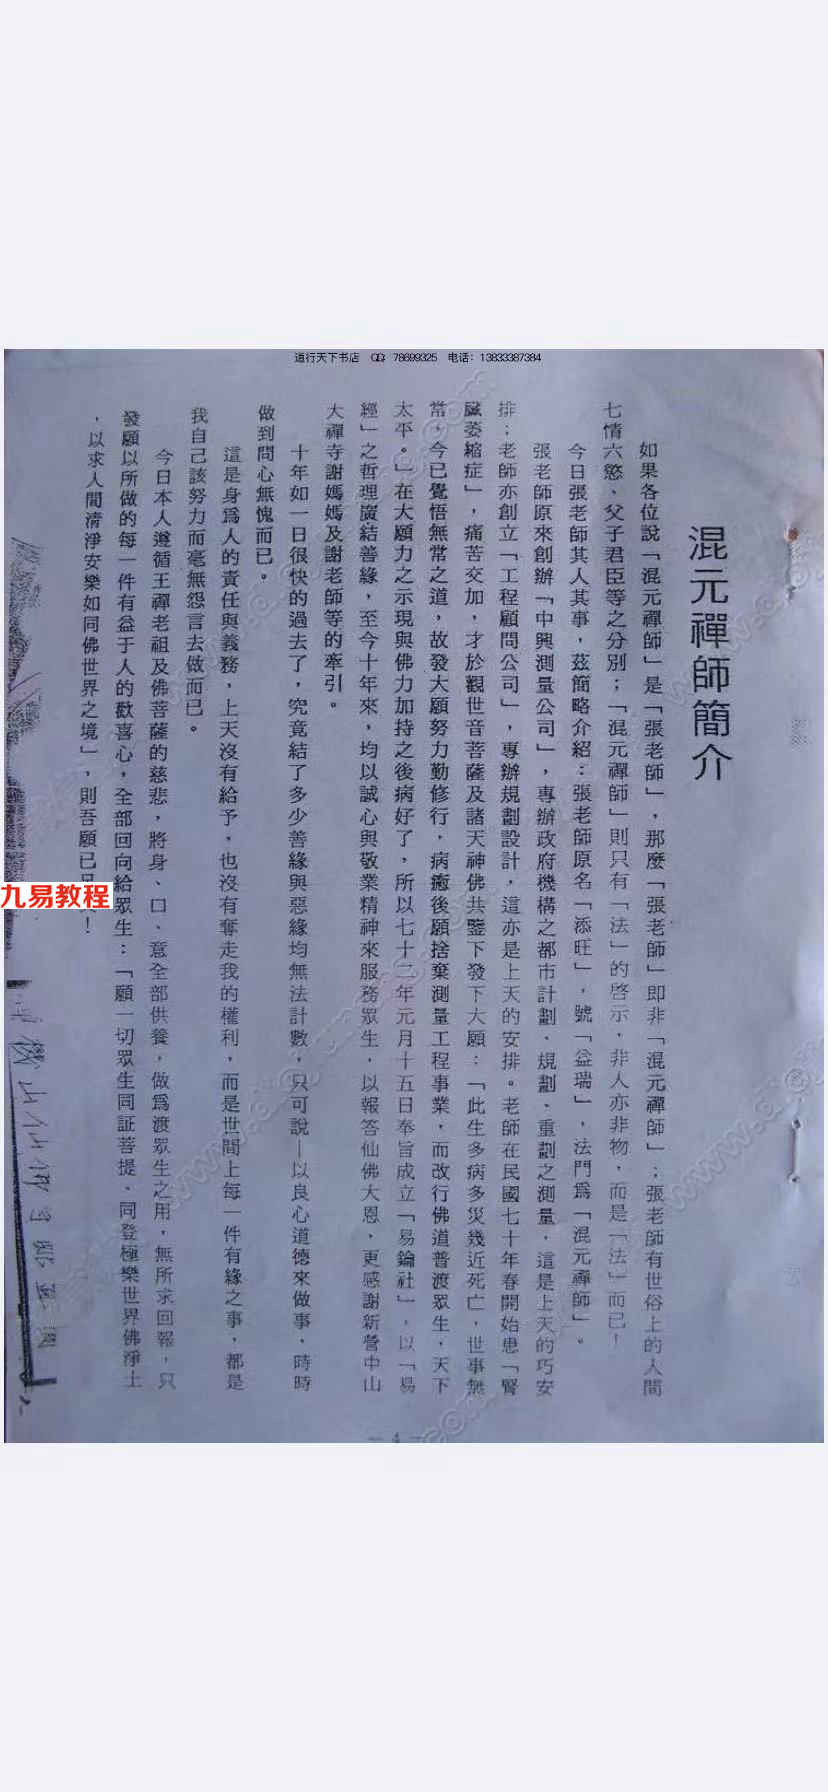 道行天下书店 QQ: 78699325 电话: 13833387384
混元禪師簡介
如果各位說「混元禪師」是「張老師」，那麼「張老師」即非「混元禪師」；張老師有世俗上的人間
七情六慾、父子君臣等之分別；「混元禪師」則只有「法」的啓示，非人亦非物，而是「法」而已！
今日張老師其人其事，茲簡略介紹：張老師原名「添旺」，號「益瑞」，法門爲「混元禪師」。
張老師原來創辦「中興測量公司」，專辦政府機構之都市計劃、規劃、重劃之測量，這是上天的巧安
排；老師亦創立「工程顧問公司」，專辦規劃設計，這亦是上天的安排。老師在民國七十年春開始患「腎
臟萎縮症」，痛苦交加，才於觀世音菩薩及諸天神佛共鑒下發下大願：「此生多病多災幾近死亡，世事無
常，今已覺悟無常之道，故發大願努力勤修行，病癒後願捨棄測量工程事業，而改行佛道普渡眾生，天下
太平。」在大願力之示現與佛力加持之後病好了，所以七十二年元月十五日奉旨成立「易錀社」，以「易
經」之哲理廣結善緣，至今十年來，均以誠心與敬業精神來服務眾生，以報答仙佛大恩，更感謝新營中山
大禪寺謝媽媽及謝老師等的牽引。
十年如一日很快的過去了，究竟結了多少善緣與惡緣均無法計數，只可說—以良心道德來做事，時時
做到問心無愧而已。
這是身爲人的責任與義務，上天沒有給予，也沒有奪走我的權利，而是世間上每一件有緣之事，都是
我自己該努力而毫無怨言去做而已。
今日本人遵循王禪老祖及佛菩薩的慈悲，將身、口、意全部供養，做爲渡眾生之用，無所求回報，只
發願以所做的每一件有益于人的歡喜心，全部回向給眾生：「願一切眾生同証菩提、同登極樂世界佛淨土
，以求人間清淨安樂如同佛世界之境」，則吾願已！
九易教程
— 4 —